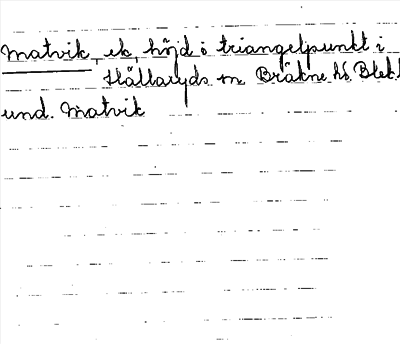 Matvik, ek, höjd o triangelpunkt i
Hällaryds sn Bräkne hd. Blek.
und. Matvik